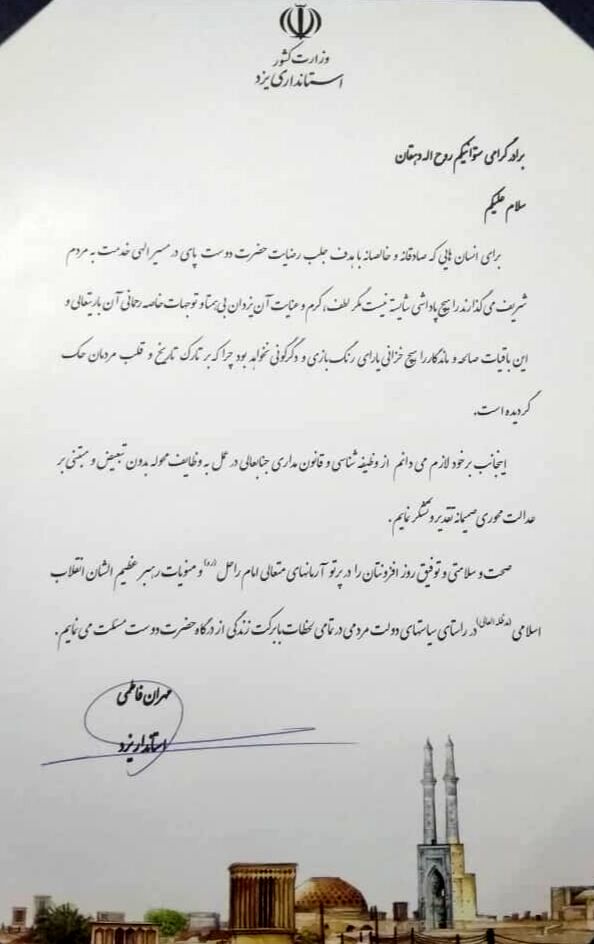 وزارت کشور
استانداری یزد
برادر گرامی ستوانیکم روح اله دهقان
سلام علیکم
برای انسان هایی که صادقانه و خالصانه با هدف جلب رضایت حضرت دوست پای در مسیر الهی خدمت به مردم
شریف می گذارند را هیچ پاداشی شایسته نیست مگر لطف، کرم و عنایت آن یزدان بی همتا و توجهات خاصه رحمانی آن باریتعالی و
این باقیات صالحه و ماندگار را هیچ خزانی یارای رنگ بازی و دگرگونی نخواهد بود چرا که بر تارک تاریخ و قلب مردمان حک
گردیده است.
اینجانب برخود لازم می دانم از وظیفه شناسی و قانون مداری جنابعالی در عمل به وظایف محوله بدون تبعیض و مبتنی بر
عدالت محوری صمیمانه تقدیر و تشکر نمایم.
صحت و سلامتی و توفیق روز افزونتان را در پرتو آرمانهای متعالی امام راحل (ره) و منویات رهبر عظیم الشان انقلاب
اسلامی (مدظله العالی) در راستای سیاستهای دولت مردمی در تمامی لحظات با برکت زندگی از درگاه حضرت دوست مسئلت می نمایم.
مهران فاطمی
استاندار یزد